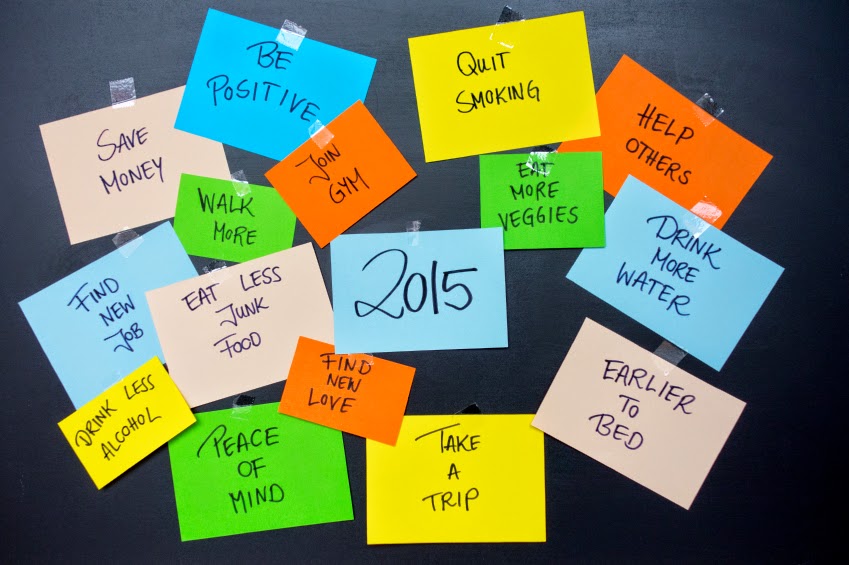 BE
POSITIVE
QUIT
SMOKING
SAVE
MONEY
JOIN
GYM
HELP
OTHERS
WALK
MORE
EAT
MORE
VEGGIES
2015
DRINK
MORE
WATER
FIND
NEW
JOB
EAT LESS
JUNK
FOOD
FIND
NEW
LOVE
EARLIER
TO
BED
DRINK LESS
ALCOHOL
PEACE
OF
MIND
TAKE
A
TRIP